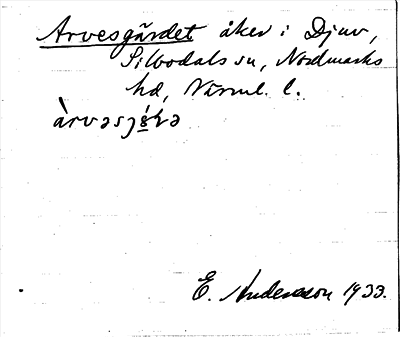 Arvesgärdet åker i Djuv,
Silbodals sn, Nordmarks
hd, Värml. l.
E. Andersson 1933.